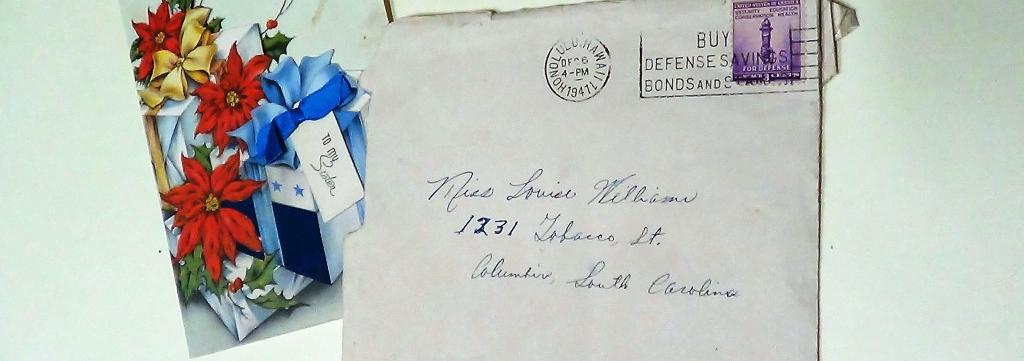 TO MY
Sister
HONOLULU, HAWAII
DE 6
4-PM
1941
BUY
DEFENSE SAVINGS
BONDS AND
UNITED STATES OF AMERICA
SECURITY EDUCATION
CONSERVATION HEALTH
FOR DEFENSE
CENTS
Miss Louise Williams
1231 Tobacco, St.
Columbia, South Carolina